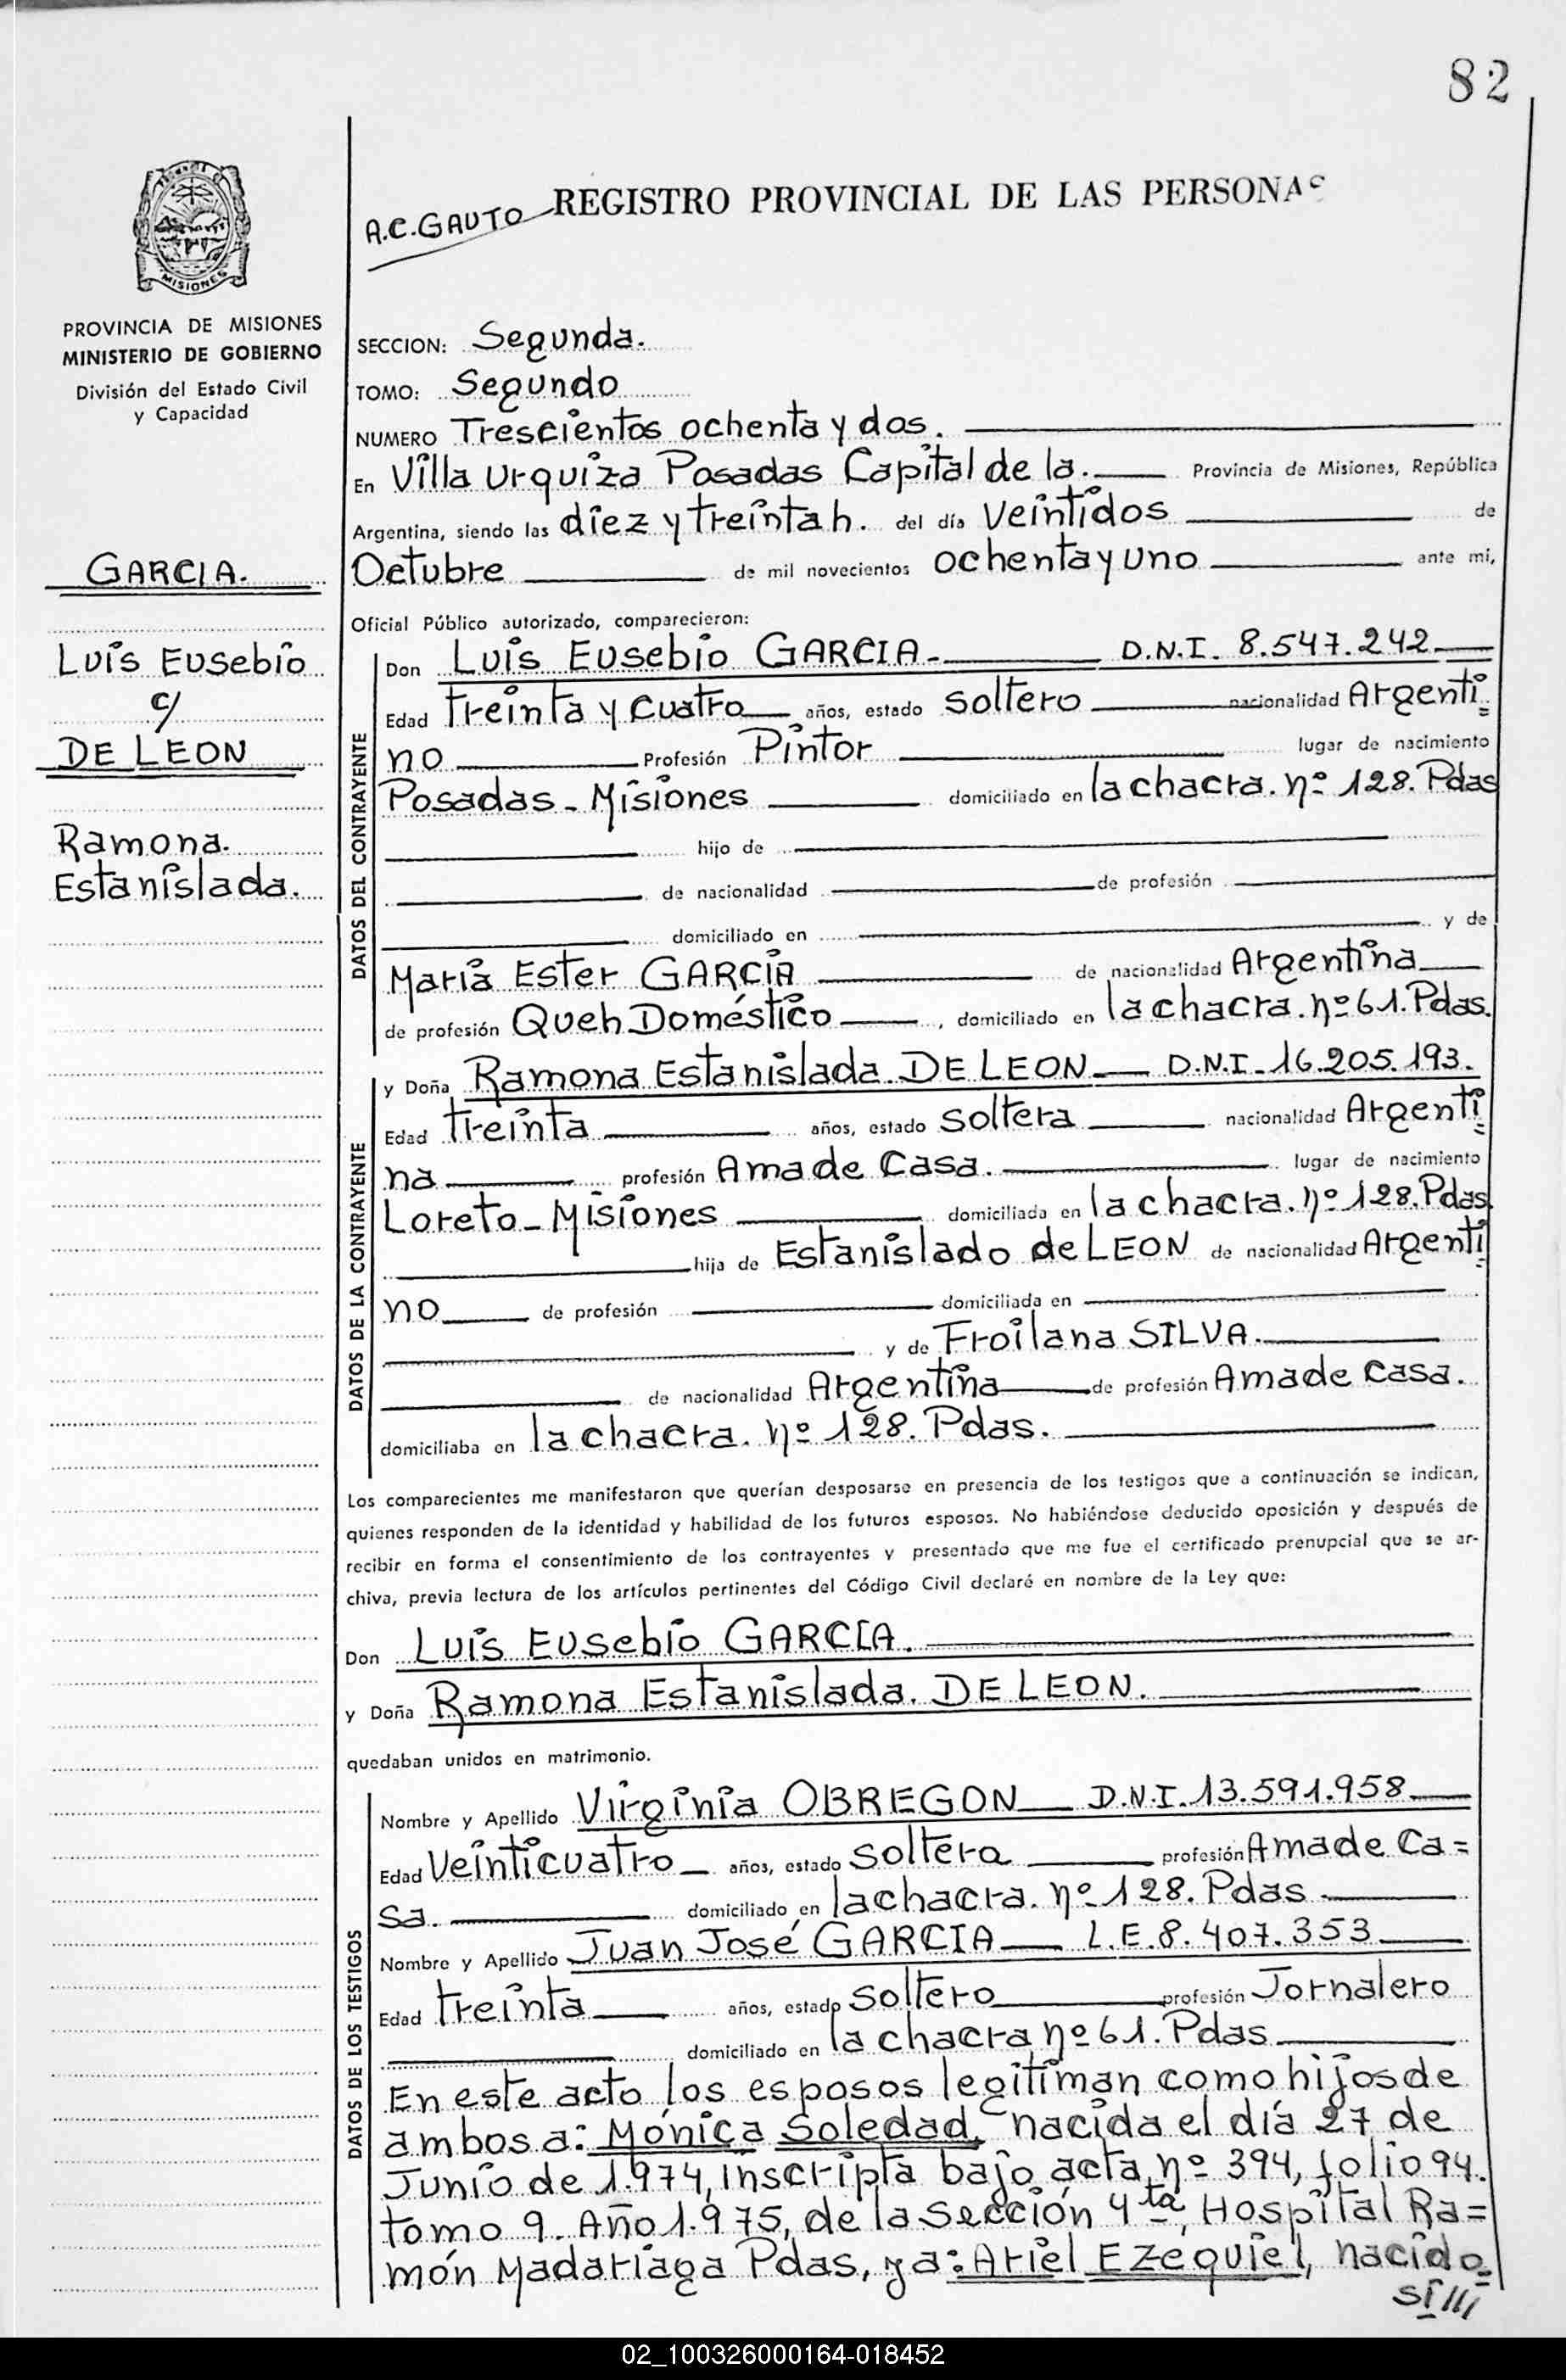 82
A.C.GAUTO
REGISTRO PROVINCIAL DE LAS PERSONAS
MISIONES
PROVINCIA DE MISIONES
MINISTERIO DE GOBIERNO
División del Estado Civil
y Capacidad
GARCIA.
Luis Eusebio
c/
DE LEON
Ramona.
Estanislada.
SECCION: Segunda.
TOMO: Segundo
NUMERO Trescientos ochenta y dos.
En Villa Urquiza Posadas Capital de la. Provincia de Misiones, República
Argentina, siendo las diez y treinta h. del día Veintidos de
Octubre de mil novecientos ochenta y uno ante mi,
Oficial Público autorizado, comparecieron:
DATOS DEL CONTRAYENTE
Don Luis Eusebio GARCIA- D.N.I. 8.547.242
Edad treinta y cuatro años, estado soltero nacionalidad Argenti
no Profesión Pintor lugar de nacimiento
Posadas - Misiones domiciliado en la chacra. nº 128. Pdas
hijo de
de nacionalidad de profesión
domiciliado en y de
María Ester GARCIA de nacionalidad Argentina
de profesión Queh Doméstico, domiciliado en la chacra. nº 61. Pdas.
DATOS DE LA CONTRAYENTE
y Doña Ramona Estanislada. DE LEON D.N.I. 16.205.193.
Edad treinta años, estado soltera nacionalidad Argenti
na profesión Ama de Casa. lugar de nacimiento
Loreto - Misiones domiciliada en la chacra. nº 128. Pdas
hija de Estanislado de LEON de nacionalidad Argenti
no de profesión domiciliada en
y de Froilana SILVA.
de nacionalidad Argentina de profesión Ama de Casa.
domiciliaba en la chacra. nº 128. Pdas.
Los comparecientes me manifestaron que querían desposarse en presencia de los testigos que a continuación se indican,
quienes responden de la identidad y habilidad de los futuros esposos. No habiéndose deducido oposición y después de
recibir en forma el consentimiento de los contrayentes y presentado que me fue el certificado prenupcial que se ar-
chiva, previa lectura de los artículos pertinentes del Código Civil declaré en nombre de la Ley que:
Don Luis Eusebio GARCIA.
y Doña Ramona Estanislada. DE LEON.
quedaban unidos en matrimonio.
DATOS DE LOS TESTIGOS
Nombre y Apellido Virginia OBREGON D.N.I. 13.591.958
Edad Veinticuatro años, estado soltera profesión Ama de Ca=
sa. domiciliado en la chacra. nº 128. Pdas
Nombre y Apellido Juan José GARCIA L.E. 8.407.353
Edad treinta años, estado soltero profesión Jornalero
domiciliado en la chacra nº 61. Pdas
En este acto los esposos legitiman como hijos de
ambos a: Mónica Soledad, nacida el día 27 de
Junio de 1.974, inscripta bajo acta nº 394, folio 94.
tomo 9. Año 1.975, de la Sección 4ta, Hospital Ra=
món Madariaga Pdas, y a: Ariel Ezequiel, nacido
SI///
02_100326000164-018452